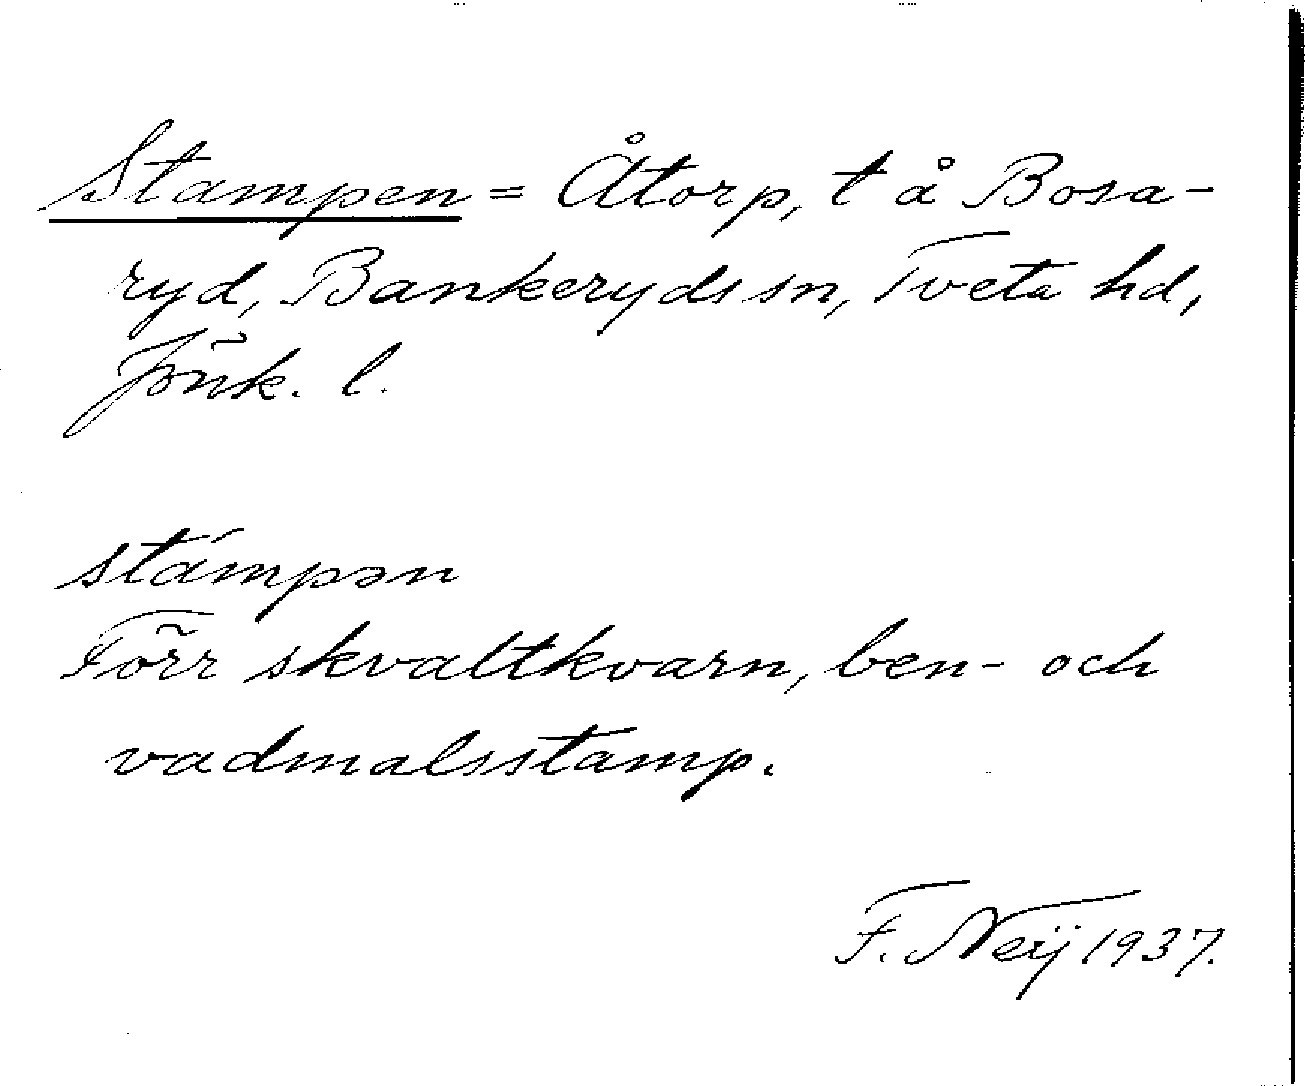 Stampen = Åtorp, t å Bosa-
ryd, Bankeryds sn, Tveta hd,
Jönk. l.
stámpən
Förr skvaltkvarn, ben- och
vadmalsstamp.
F. Neij 1937.